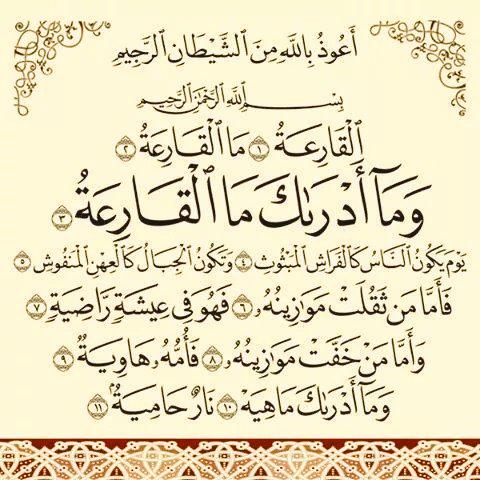 أَعُوذُ بِاللَّهِ مِنَ الشَّيْطَانِ الرَّجِيمِ
بِسْمِ اللَّهِ الرَّحْمَٰنِ الرَّحِيمِ
ٱلْقَارِعَةُ ١ مَا ٱلْقَارِعَةُ ٢
وَمَآ أَدْرَىٰكَ مَا ٱلْقَارِعَةُ ٣
يَوْمَ يَكُونُ ٱلنَّاسُ كَٱلْفَرَاشِ ٱلْمَبْثُوثِ ٤ وَتَكُونُ ٱلْجِبَالُ كَٱلْعِهْنِ ٱلْمَنفُوشِ ٥
فَأَمَّا مَن ثَقُلَتْ مَوَٰزِينُهُۥ ٦ فَهُوَ فِى عِيشَةٍ رَّاضِيَةٍ ٧
وَأَمَّا مَنْ خَفَّتْ مَوَٰزِينُهُۥ ٨ فَأُمُّهُۥ هَاوِيَةٌ ٩
وَمَآ أَدْرَىٰكَ مَا هِيَهْ ١٠ نَارٌ حَامِيَةٌۢ ١١